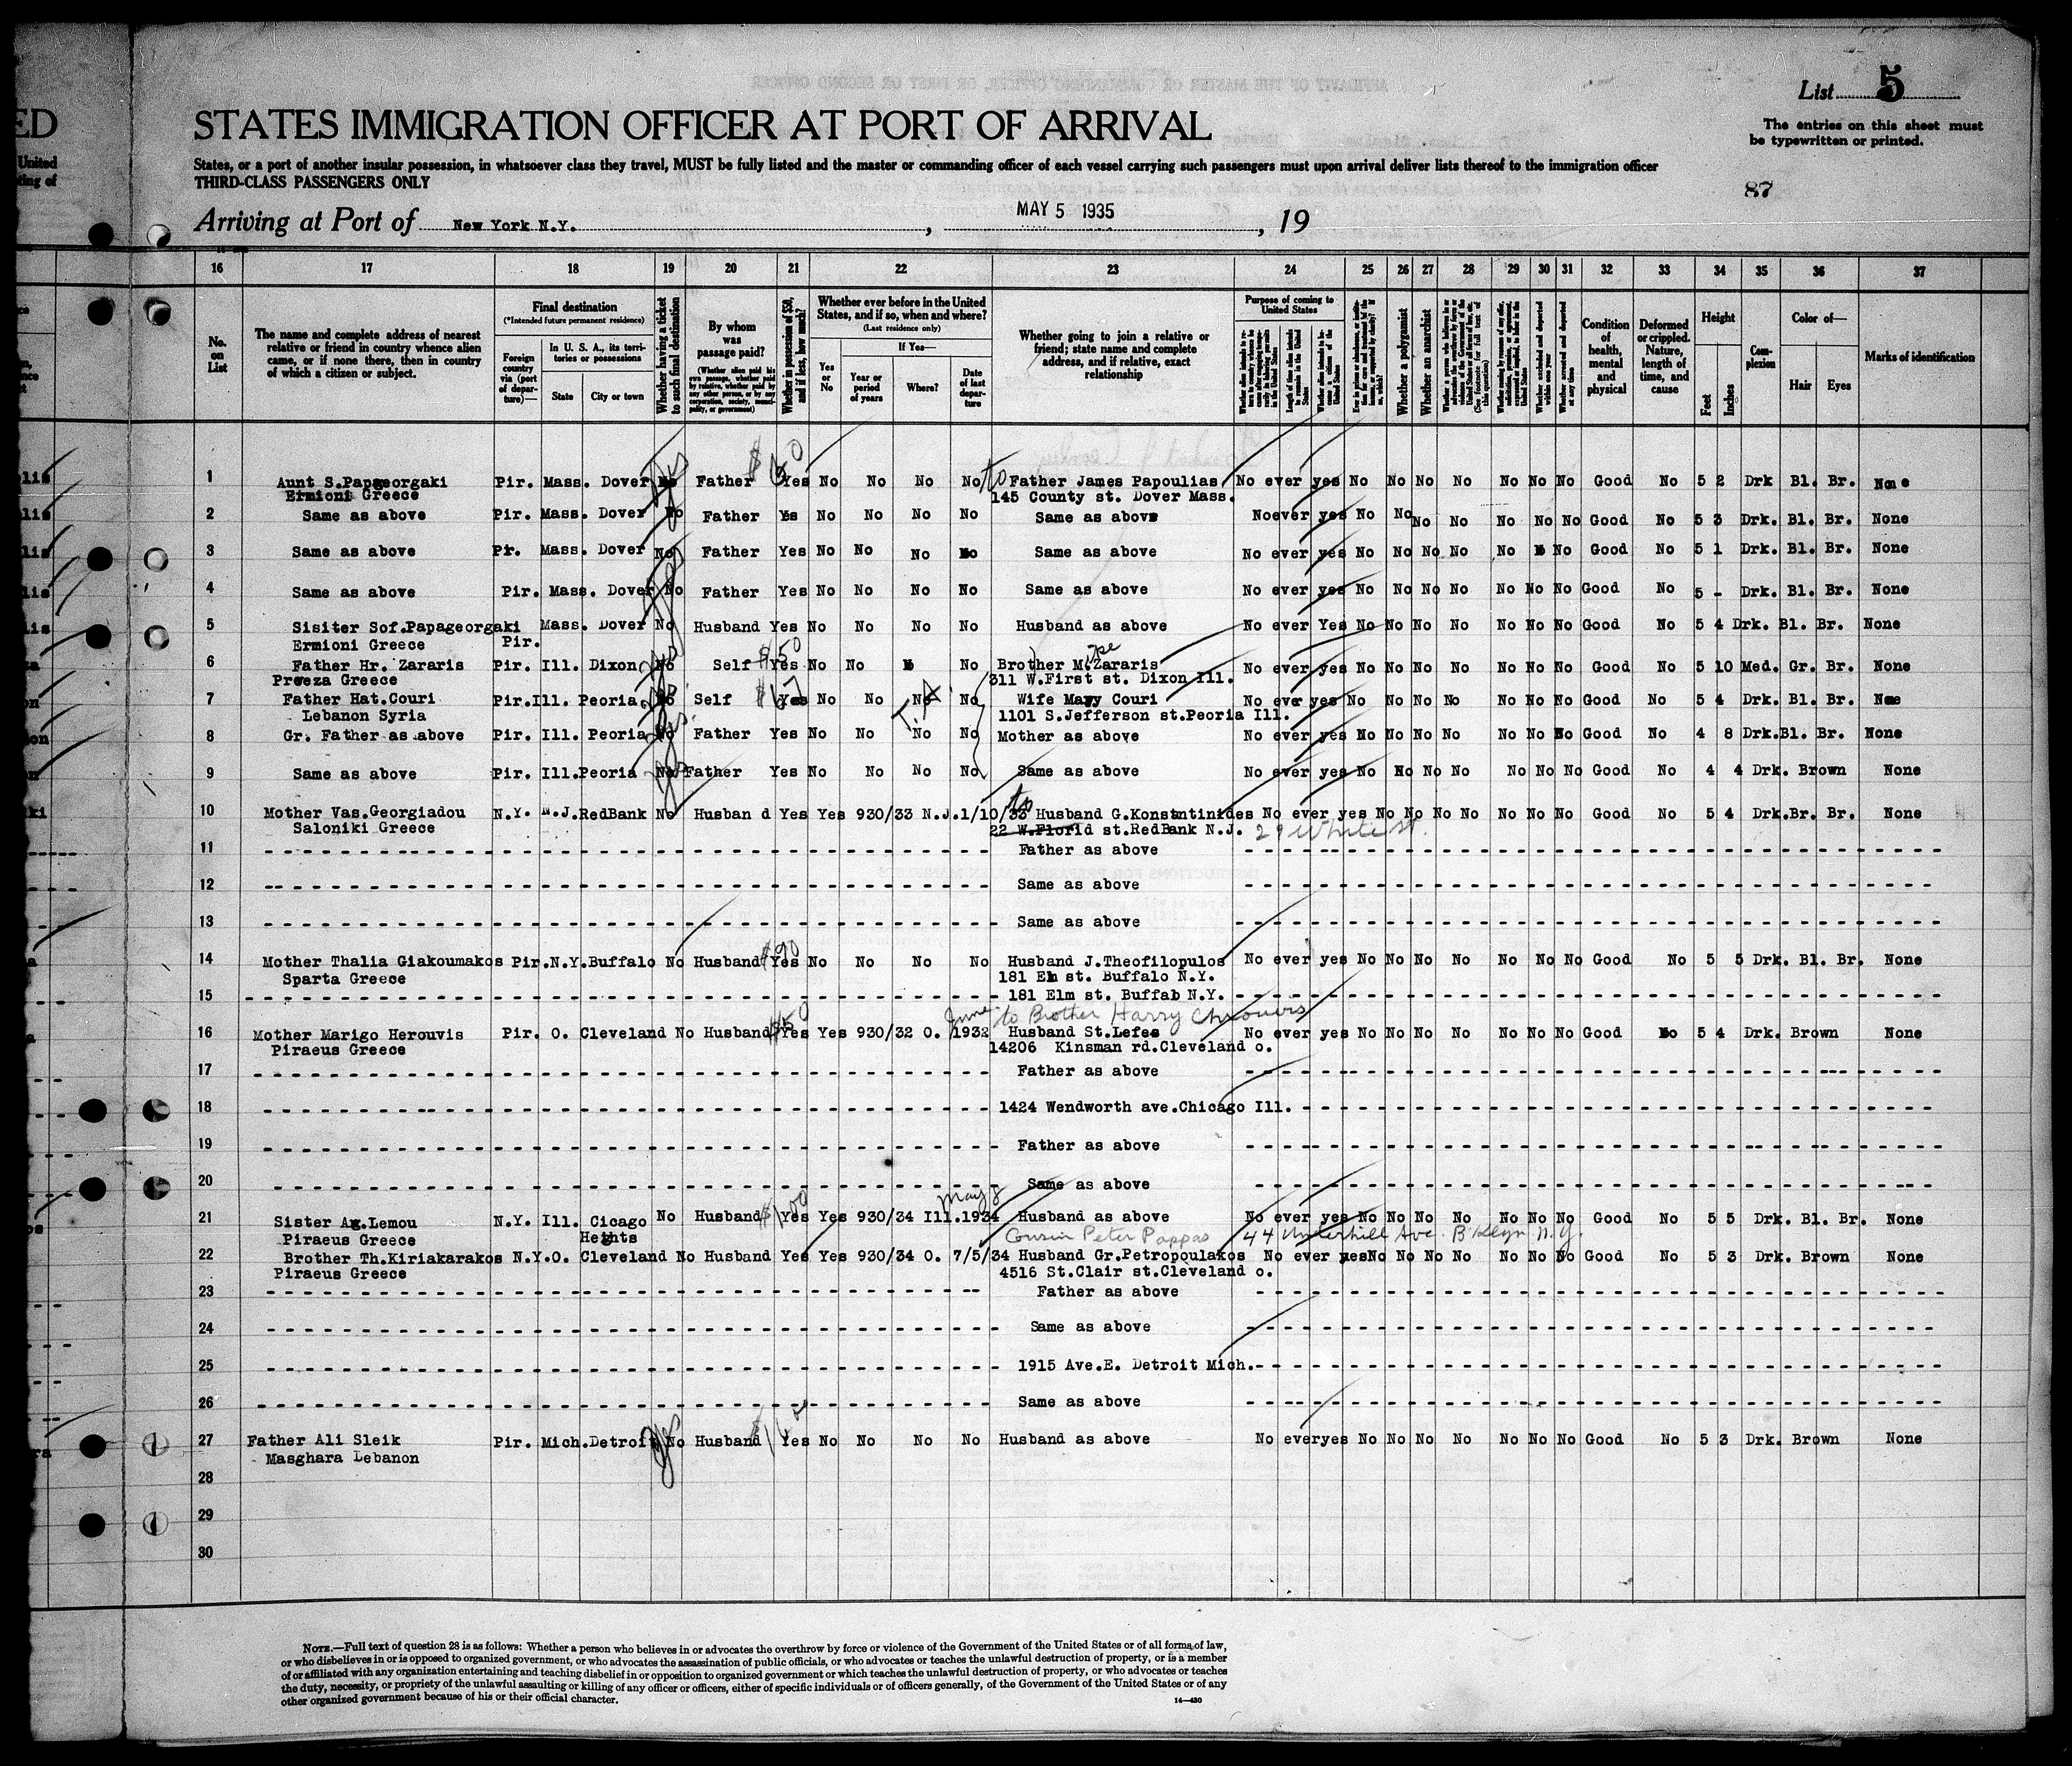 List 5
The entries on this sheet must
be typewritten or printed.
87
ED
STATES IMMIGRATION OFFICER AT PORT OF ARRIVAL
United
States, or a port of another insular possession, in whatsoever class they travel, MUST be fully listed and the master or commanding officer of each vessel carrying such passengers must upon arrival deliver lists thereof to the immigration officer
THIRD-CLASS PASSENGERS ONLY
Arriving at Port of New York N.Y. , MAY 5 1935 , 19
16 17 18 19 20 21 22 23 24 25 26 27 28 29 30 31 32 33 34 35 36 37
No. on List
The name and complete address of nearest relative or friend in country whence alien came, or if none there, then in country of which a citizen or subject.
Final destination
(*Intended future permanent residence)
Foreign country via (port of departure)—
In U. S. A., its territories or possessions
State
City or town
Whether having a ticket to such final destination
By whom was passage paid?
(Whether alien paid his own passage, whether paid by relative, whether paid by any other person, or by any corporation, society, municipality, or government)
Whether in possession of $50, and if less, how much?
Whether ever before in the United States, and if so, when and where?
(Last residence only)
Yes or No
If Yes—
Year or period of years
Where?
Date of last departure
Whether going to join a relative or friend; state name and complete address, and if relative, exact relationship
Purpose of coming to United States
Whether a polygamist
Whether an anarchist
Condition of health, mental and physical
Deformed or crippled. Nature, length of time, and cause
Height
Feet
Inches
Complexion
Color of—
Hair
Eyes
Marks of identification
$ 60
1 Aunt S.Papageorgaki Pir. Mass. Dover No Yes Father Yes No No No No to Father James Papoulias No ever yes No No No No No No No Good No 5 2 Drk Bl. Br. None
Ermioni Greece 145 County st. Dover Mass.
2 Same as above Pir. Mass. Dover No Father Yes No No No No Same as above Noever yes No No No No No No No Good No 5 3 Drk. Bl. Br. None
3 Same as above Pir. Mass. Dover No Father Yes No No No No Same as above No ever yes No No No No No No No Good No 5 1 Drk. Bl. Br. None
4 Same as above Pir. Mass. Dover No Father Yes No No No No Same as above No ever yes No No No No No No No Good No 5 - Drk. Bl. Br. None
5 Sisiter Sof.Papageorgaki Mass. Dover No Husband Yes No No No No Husband as above No ever Yes No No No No No No No Good No 5 4 Drk. Bl. Br. None
Ermioni Greece Pir.
6 Father Hr. Zararis Pir. Ill. Dixon No Self $50 Yes No No No No Brother M.Zararis No ever yes No No No No No No No Good No 5 10 Med. Gr. Br. None
Preeza Greece 311 W.First st. Dixon Ill.
7 Father Hat.Couri Pir.Ill. Peoria No Self Yes No No No No Wife Mary Couri No ever yes No No No No No No No Good No 5 4 Drk. Bl. Br. None
Lebanon Syria 1101 S.Jefferson st.Peoria Ill.
8 Gr. Father as above Pir. Ill. Peoria No Father Yes No No No No Mother as above No ever yes No No No No No No No Good No 4 8 Drk.Bl. Br. None
9 Same as above Pir. Ill.Peoria No Father Yes No No No No Same as above No ever yes No No No No No No No Good No 4 4 Drk. Brown None
10 Mother Vas.Georgiadou N.Y. N.J.RedBank No Husban d Yes Yes 930/33 N.J.1/10/33 to Husband G.Konstntinides No ever yes No No No No No No No Good No 5 4 Drk.Br. Br. None
Saloniki Greece 22 W.Florid st.RedBank N.J. 29 White st.
11 Father as above
12 Same as above
13 Same as above
14 Mother Thalia Giakoumakos Pir.N.Y.Buffalo No Husband $90 Yes No No No No Husband J.Theofilopulos No ever yes No No No No No No No Good No 5 5 Drk. Bl. Br. None
Sparta Greece 181 Elm st. Buffalo N.Y.
15 181 Elm st. Buffalo N.Y.
June to Brother Harry
16 Mother Marigo Herouvis Pir. O. Cleveland No Husband $50 Yes Yes 930/32 O. 1932 Husband St.Lefes No ever yes No No No No No No No Good No 5 4 Drk. Brown None
Piraeus Greece 14206 Kinsman rd.Cleveland o.
17 Father as above
18 1424 Wendworth ave.Chicago Ill.
19 Father as above
20 Same as above
May 8
21 Sister Ag.Lemou N.Y. Ill. Cicago No Husband $100 Yes Yes 930/34 Ill.1934 Husband as above No ever yes No No No No No No No Good No 5 5 Drk. Bl. Br. None
Piraeus Greece Heights Cousin Peter Pappas 44 Underhill Ave. B'klyn N.Y.
22 Brother Th.Kiriakarakos N.Y.O. Cleveland No Husband Yes Yes 930/34 O. 7/5/34 Husband Gr.Petropoulakos No ever yesNo No No No No No No Good No 5 3 Drk. Brown None
Piraeus Greece 4516 St.Clair st.Cleveland o.
23 Father as above
24 Same as above
25 1915 Ave.E. Detroit Mich.
26 Same as above
27 Father Ali Sleik Pir. Mich.Detroit No Yes Husband Yes No No No No Husband as above No everyes No No No No No No No Good No 5 3 Drk. Brown None
Masghara Lebanon
28
29
30
NOTE.—Full text of question 28 is as follows: Whether a person who believes in or advocates the overthrow by force or violence of the Government of the United States or of all forms of law,
or who disbelieves in or is opposed to organized government, or who advocates the assassination of public officials, or who advocates or teaches the unlawful destruction of property, or is a member
of or affiliated with any organization entertaining and teaching disbelief in or opposition to organized government or which teaches the unlawful destruction of property, or who advocates or teaches
the duty, necessity, or propriety of the unlawful assaulting or killing of any officer or officers, either of specific individuals or of officers generally, of the Government of the United States or of any
other organized government because of his or their official character.
14—430